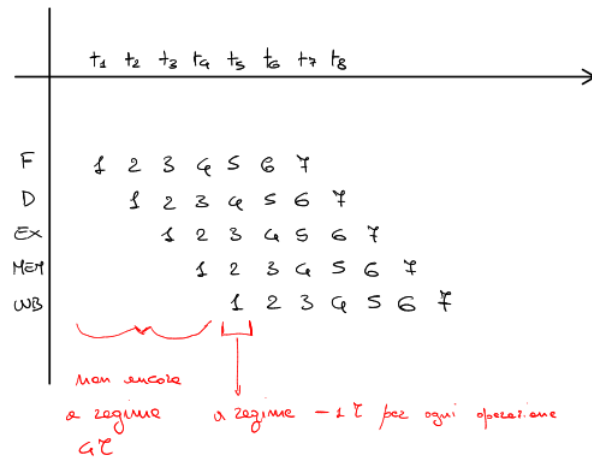 t1 t2 t3 t4 t5 t6 t7 t8
F 1 2 3 4 5 6 7
D 1 2 3 4 5 6 7
EX 1 2 3 4 5 6 7
MEM 1 2 3 4 5 6 7
WB 1 2 3 4 5 6 7
non ancora
a regime
4τ
a regime - 1 τ per ogni operazione